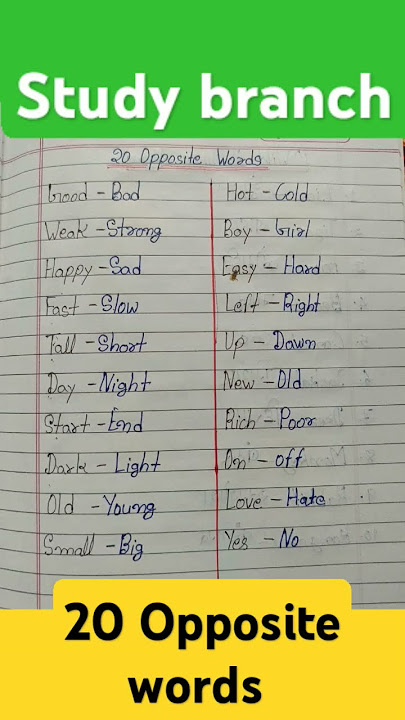 Study branch
20 Opposite Words
Good - Bad
Weak - Strong
Happy - Sad
Fast - Slow
Tall - Short
Day - Night
Start - End
Dark - Light
Old - Young
Small - Big
Hot - Cold
Boy - Girl
Easy - Hard
Left - Right
Up - Down
New - Old
Rich - Poor
On - Off
Love - Hate
Yes - No
20 Opposite
words